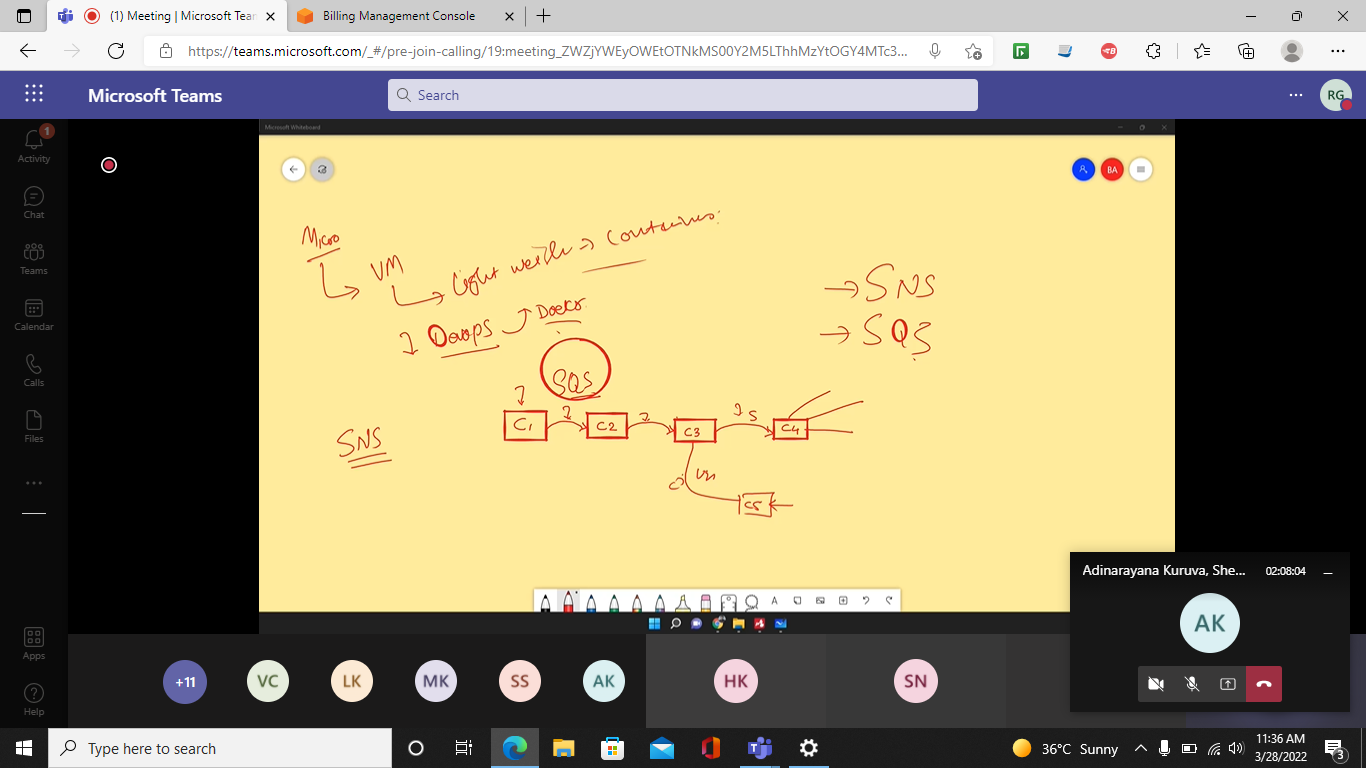 (1) Meeting | Microsoft Tean
Billing Management Console
https://teams.microsoft.com/_#/pre-join-calling/19:meeting_ZWZjYWEyOWEtOTNkMS00Y2M5LThhMzYtOGY4MTc3...
Microsoft Teams
Search
RG
1
Activity
Chat
Teams
Calendar
Calls
Files
Apps
Help
Microsoft Whiteboard
BA
Micro
VM
Light
Containers
DevOps
SQS
SNS
C1
C2
C3
S
C4
C5
→ SNS
→ SQS
A
Adinarayana Kuruva, She...
02:08:04
AK
+11
VC
LK
MK
SS
AK
HK
SN
Type here to search
36°C Sunny
11:36 AM
3/28/2022
3